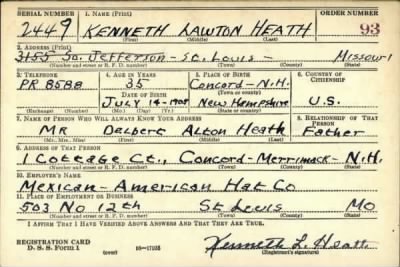 SERIAL NUMBER 1. NAME (Print) ORDER NUMBER
2449 KENNETH LAWTON HEATH 93
(First) (Middle) (Last)
2. ADDRESS (Print)
3155 So. Jefferson - St. Louis - Missouri
(Number and street or R. F. D. number) (Town) (County) (State)
3. TELEPHONE 4. AGE IN YEARS 5. PLACE OF BIRTH 6. COUNTRY OF CITIZENSHIP
PR 8588 35 Concord - N.H.
DATE OF BIRTH (Town or county)
JULY 14-1905 New Hampshire U.S.
(Exchange) (Number) (Mo.) (Day) (Yr.) (State or country)
7. NAME OF PERSON WHO WILL ALWAYS KNOW YOUR ADDRESS 8. RELATIONSHIP OF THAT PERSON
Mr Delbert Alton Heath Father
(Mr., Mrs., Miss) (First) (Middle) (Last)
9. ADDRESS OF THAT PERSON
1 Cottage Ct., Concord - Merrimack - N.H.
(Number and street or R. F. D. number) (Town) (County) (State)
10. EMPLOYER'S NAME
Mexican - American Hat Co
11. PLACE OF EMPLOYMENT OR BUSINESS
503 No 12th St Louis Mo
(Number and street or R. F. D. number) (Town) (County) (State)
I AFFIRM THAT I HAVE VERIFIED ABOVE ANSWERS AND THAT THEY ARE TRUE.
REGISTRATION CARD
D. S. S. Form 1 (over) 16-17105 Kenneth L. Heath
(Registrant's signature)